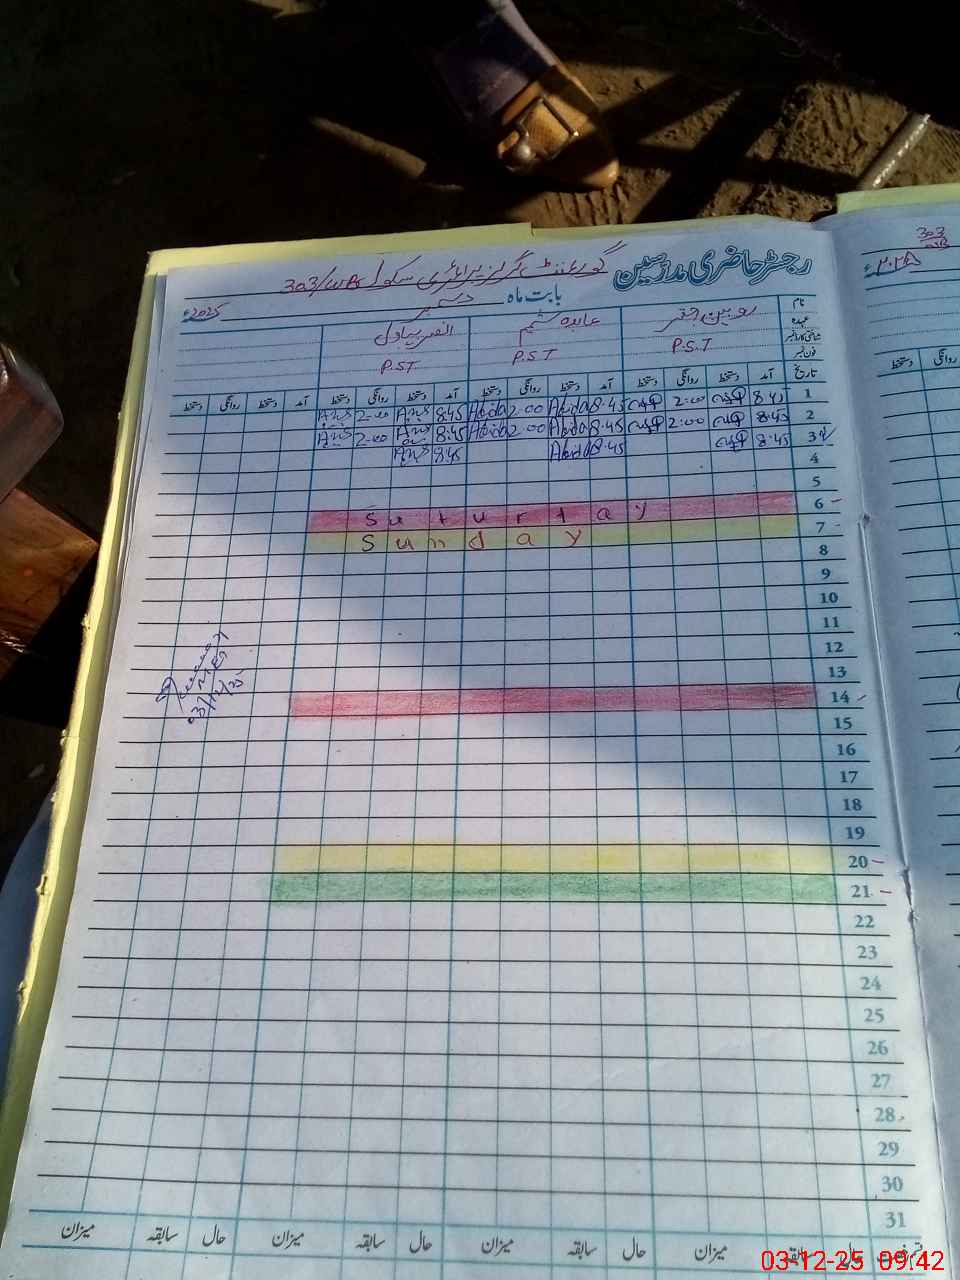 رجسٹر حاضری مدرسین گورنمنٹ گرلز پرائمری سکول 303/WB
بابت ماہ دسمبر 2025ء
نام
عہدہ P.S.T P.S.T P.S.T
شناختی کارڈ نمبر
فون نمبر
تاریخ آمد دستخط روانگی دستخط آمد دستخط روانگی دستخط آمد دستخط روانگی دستخط آمد دستخط روانگی دستخط
1 8:45 2:00 8:45 Abida 2:00 Abida 8:45 2:00
2 8:45 2:00 8:45 Abida 2:00 Abida 8:45 2:00
3 8:45 8:45 Abida 8:45
4
5
6 Saturtay
7 Sunday
8
9
10
11
12
13
14
15
16
17
18
19
20
21
22
23
24
25
26
27
28
29
30
31
حال سابقہ میزان حال سابقہ میزان حال سابقہ میزان حال سابقہ میزان
03/12/25
303
WB
روانگی دستخط
03-12-25 09:42